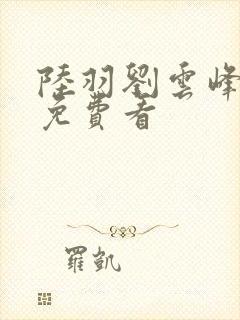 陸羽劉雲峰
免費看
羅凱